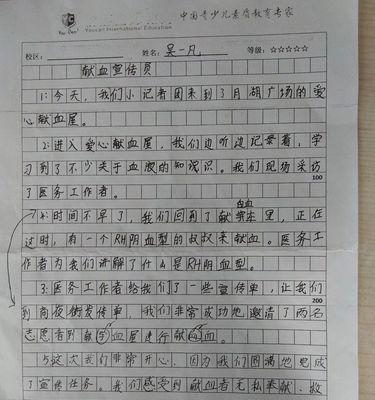 中国青少儿素质教育专家
You Can!
Youcan! International Education
校区: 姓名: 吴一凡 等级: ☆☆☆☆☆
献血宣传员
1:今天,我们小记者团来到了月湖广场的爱
心献血屋。
2:进入爱心献血屋,我们边听边记录着,学
习到了不少关于血液的知识识。我们现场采访
100
了医务工作者。
血
4:时间不早了,我们回到了献车里,正在
这时,有一个RH阴血型的叔叔来献血。医务工
作者为我们讲解了什么是RH阴血型。
3:医务工作者给我们了一些宣传单,让我们
200
到商夜街发传单,我们非常成功地邀请了两名
志愿者到献血屋进行献血。
5:这次我们非常开心,因为我们圆满地完成
了宣传任务。我们感受到献血者无私奉献、救